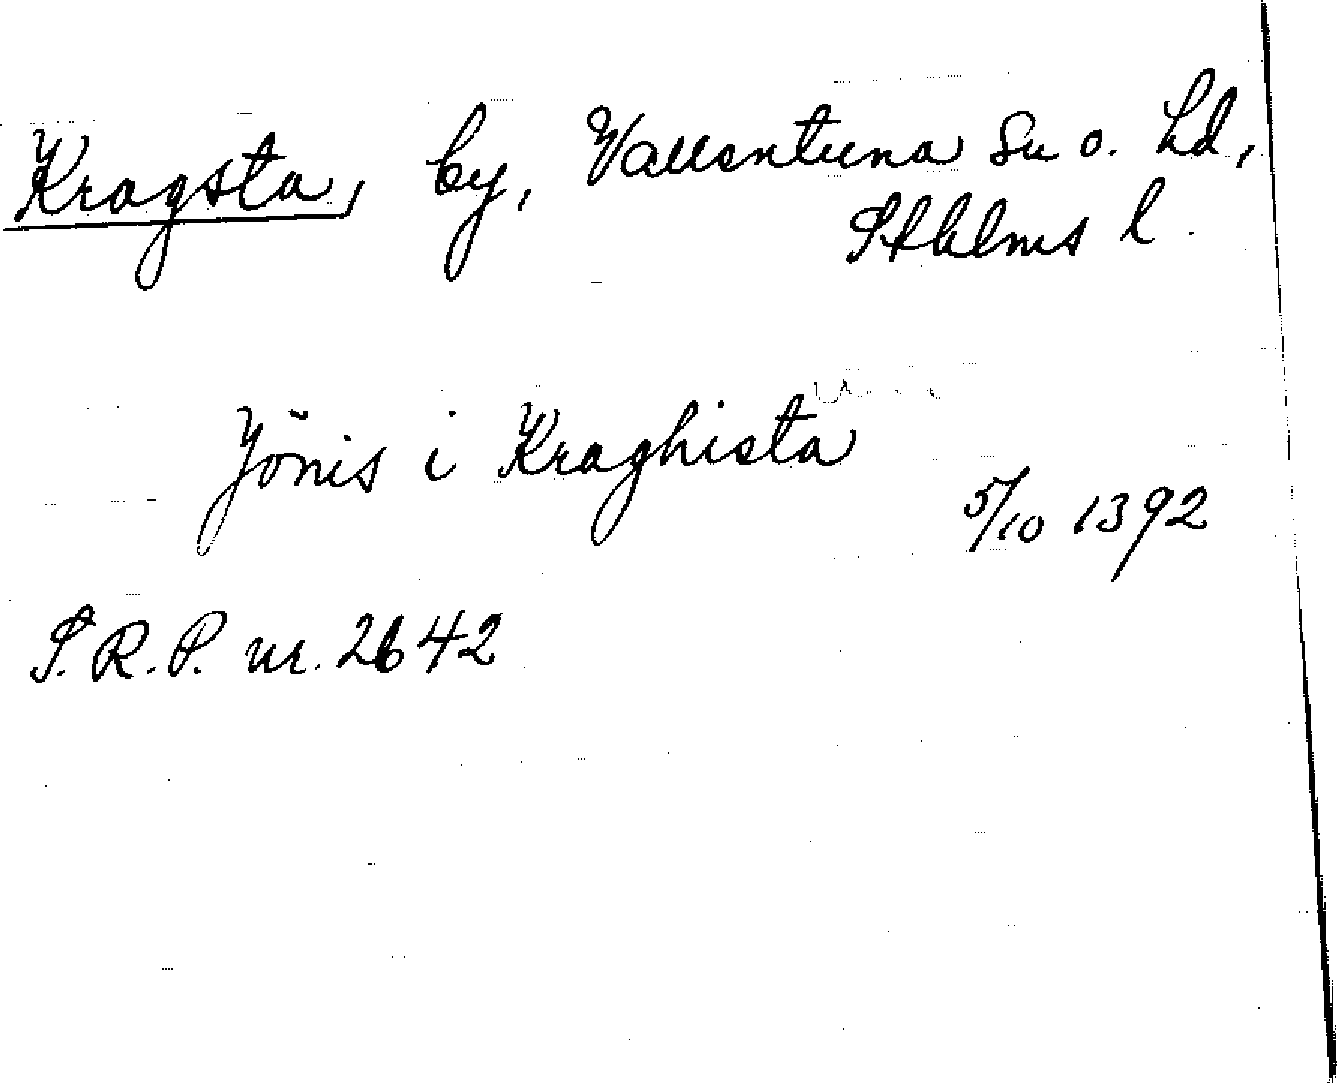 Kragsta, by, Vallentuna Sn o. Hd,
Sthlms l.
Jönis i Kraghista
5/10 1392
S.R.P. nr. 2642